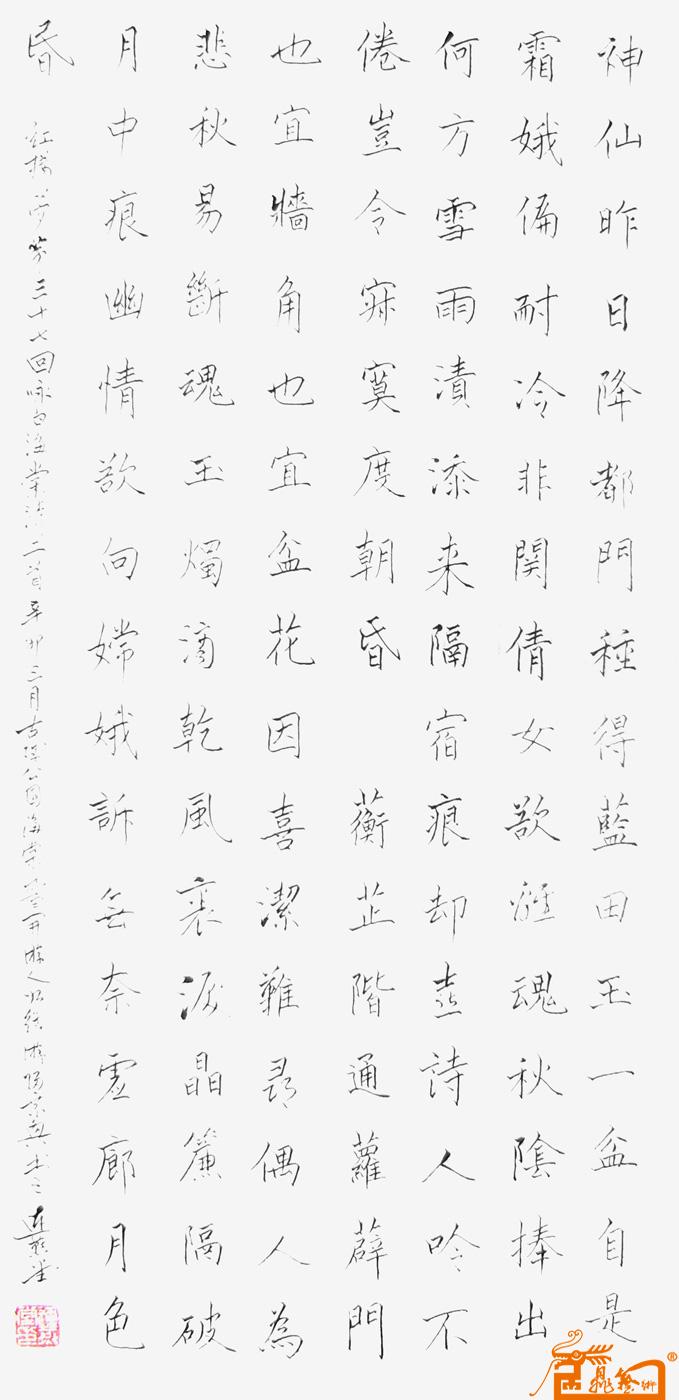 神仙昨日降都門種得藍田玉一盆自是
霜娥偏耐冷非関倩女欲離魂秋陰捧出
何方雪雨漬添来隔宿痕却喜詩人吟不
倦豈令寂寞度朝昏 蘅芷階通蘿薜門
也宜牆角也宜盆花因喜潔難尋偶人為
悲秋易斷魂玉燭滴乾風裏淚晶簾隔破
月中痕幽情欲向嫦娥訴無奈虛廊月色
昏
紅楼夢第三十七回咏白海棠詩二首辛卯三月古城公園海棠盛開游人